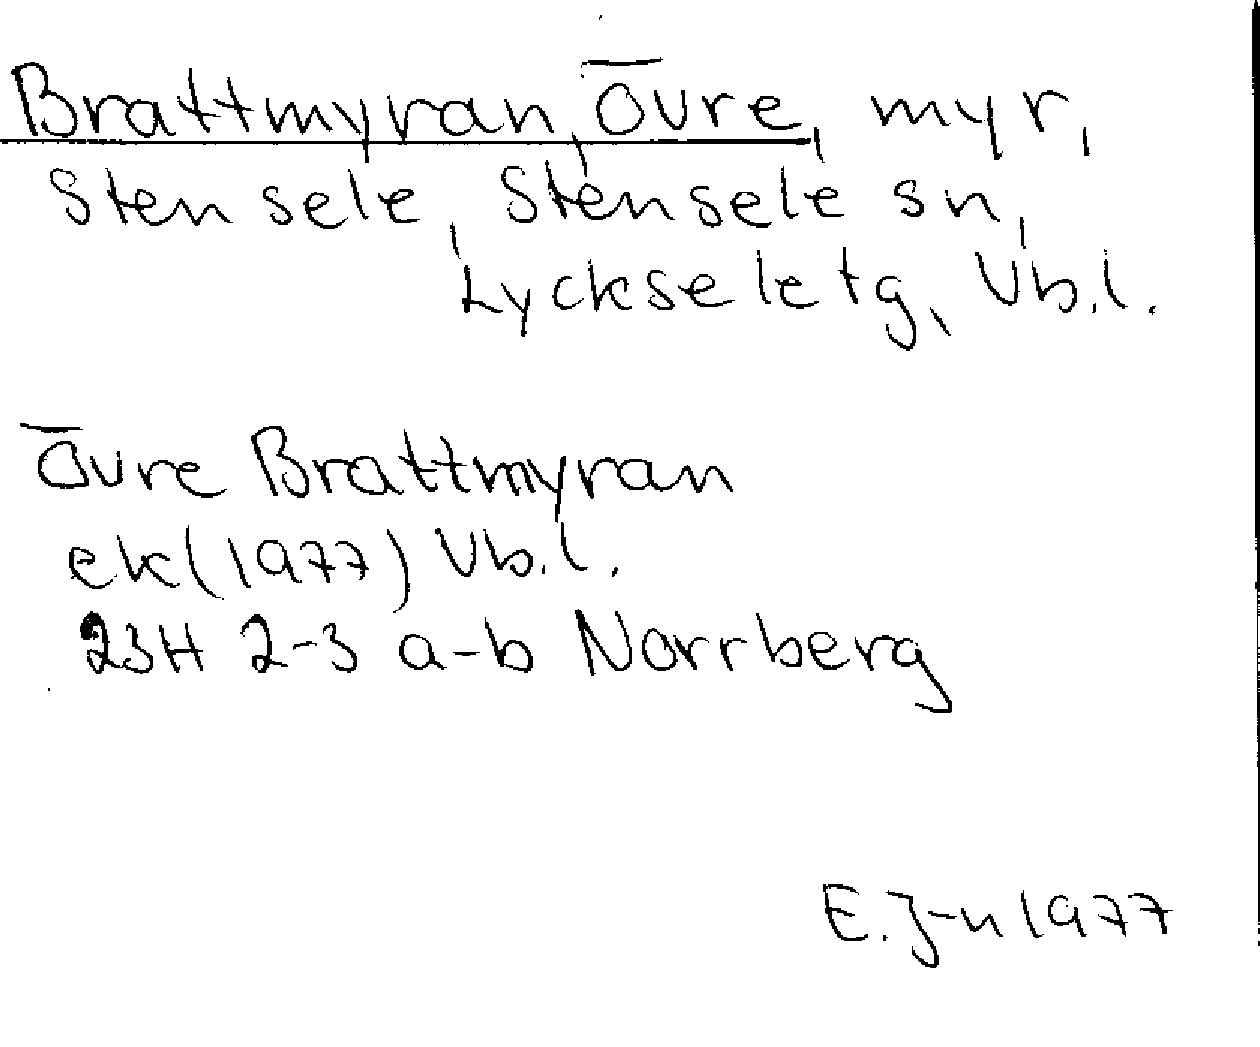 Brattmyran, Övre, myr,
Stensele, Stensele sn,
Lycksele tg, Vb.l.
Övre Brattmyran
ek (1977) Vb.l.
23H 2-3 a-b Norrberg
E.J-n 1977